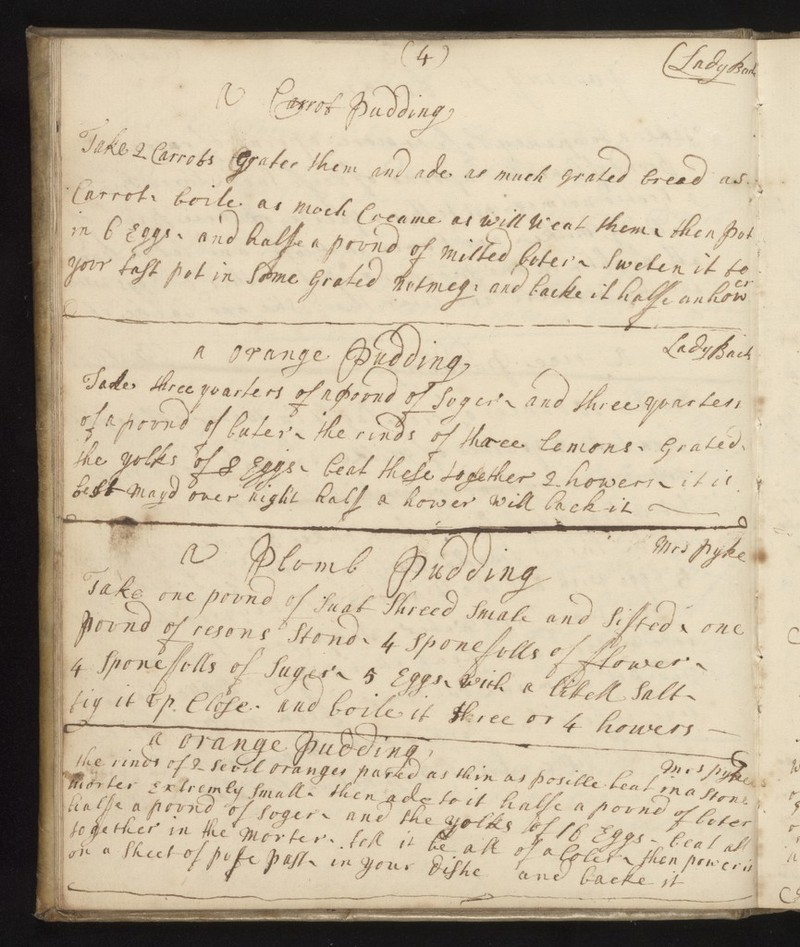 (4)
(Lady Bach
A Carrot Pudding
Take 2 Carrots Grater them and ade as much grated bread as
Carrot. boile as much Creame as will Weat them. then put
in 6 Eggs. and halfe a pound of milted buter. Sweten it to
your tast put in Some Grated nutmeg. and backe it halfe an hower
a orange Pudding
Lady Bach
Take three quarters of a pound of Suger. and three quarters
of a pound of buter. the rinds of three Lemons. Grated.
the yolks of 8 Eggs. beat these together 2 howers. it is
best mayd over night half a hower will back it
A Plomb Pudding
Mrs Pyke
Take one pound of Suat Shreed Smale and Sifted. one
pound of resons Stond. 4 Sponefulls of flower.
4 Sponefulls of Suger. 5 Eggs. with a litell Salt.
tiy it up. Close. and boile it three or 4 howers
a orange pudding
Mrs Pyke
the rinds of 2 Sevil oranges pared as thin as posille beat in a Stone
morter Extremly Small. then ade to it halfe a pound of buter
halfe a pound of Suger. and the yolks of 16 Eggs. beat all
together in the Morter. till it be all of a Coler. then power it
on a Sheet of pufe past. in your Dishe and backe it